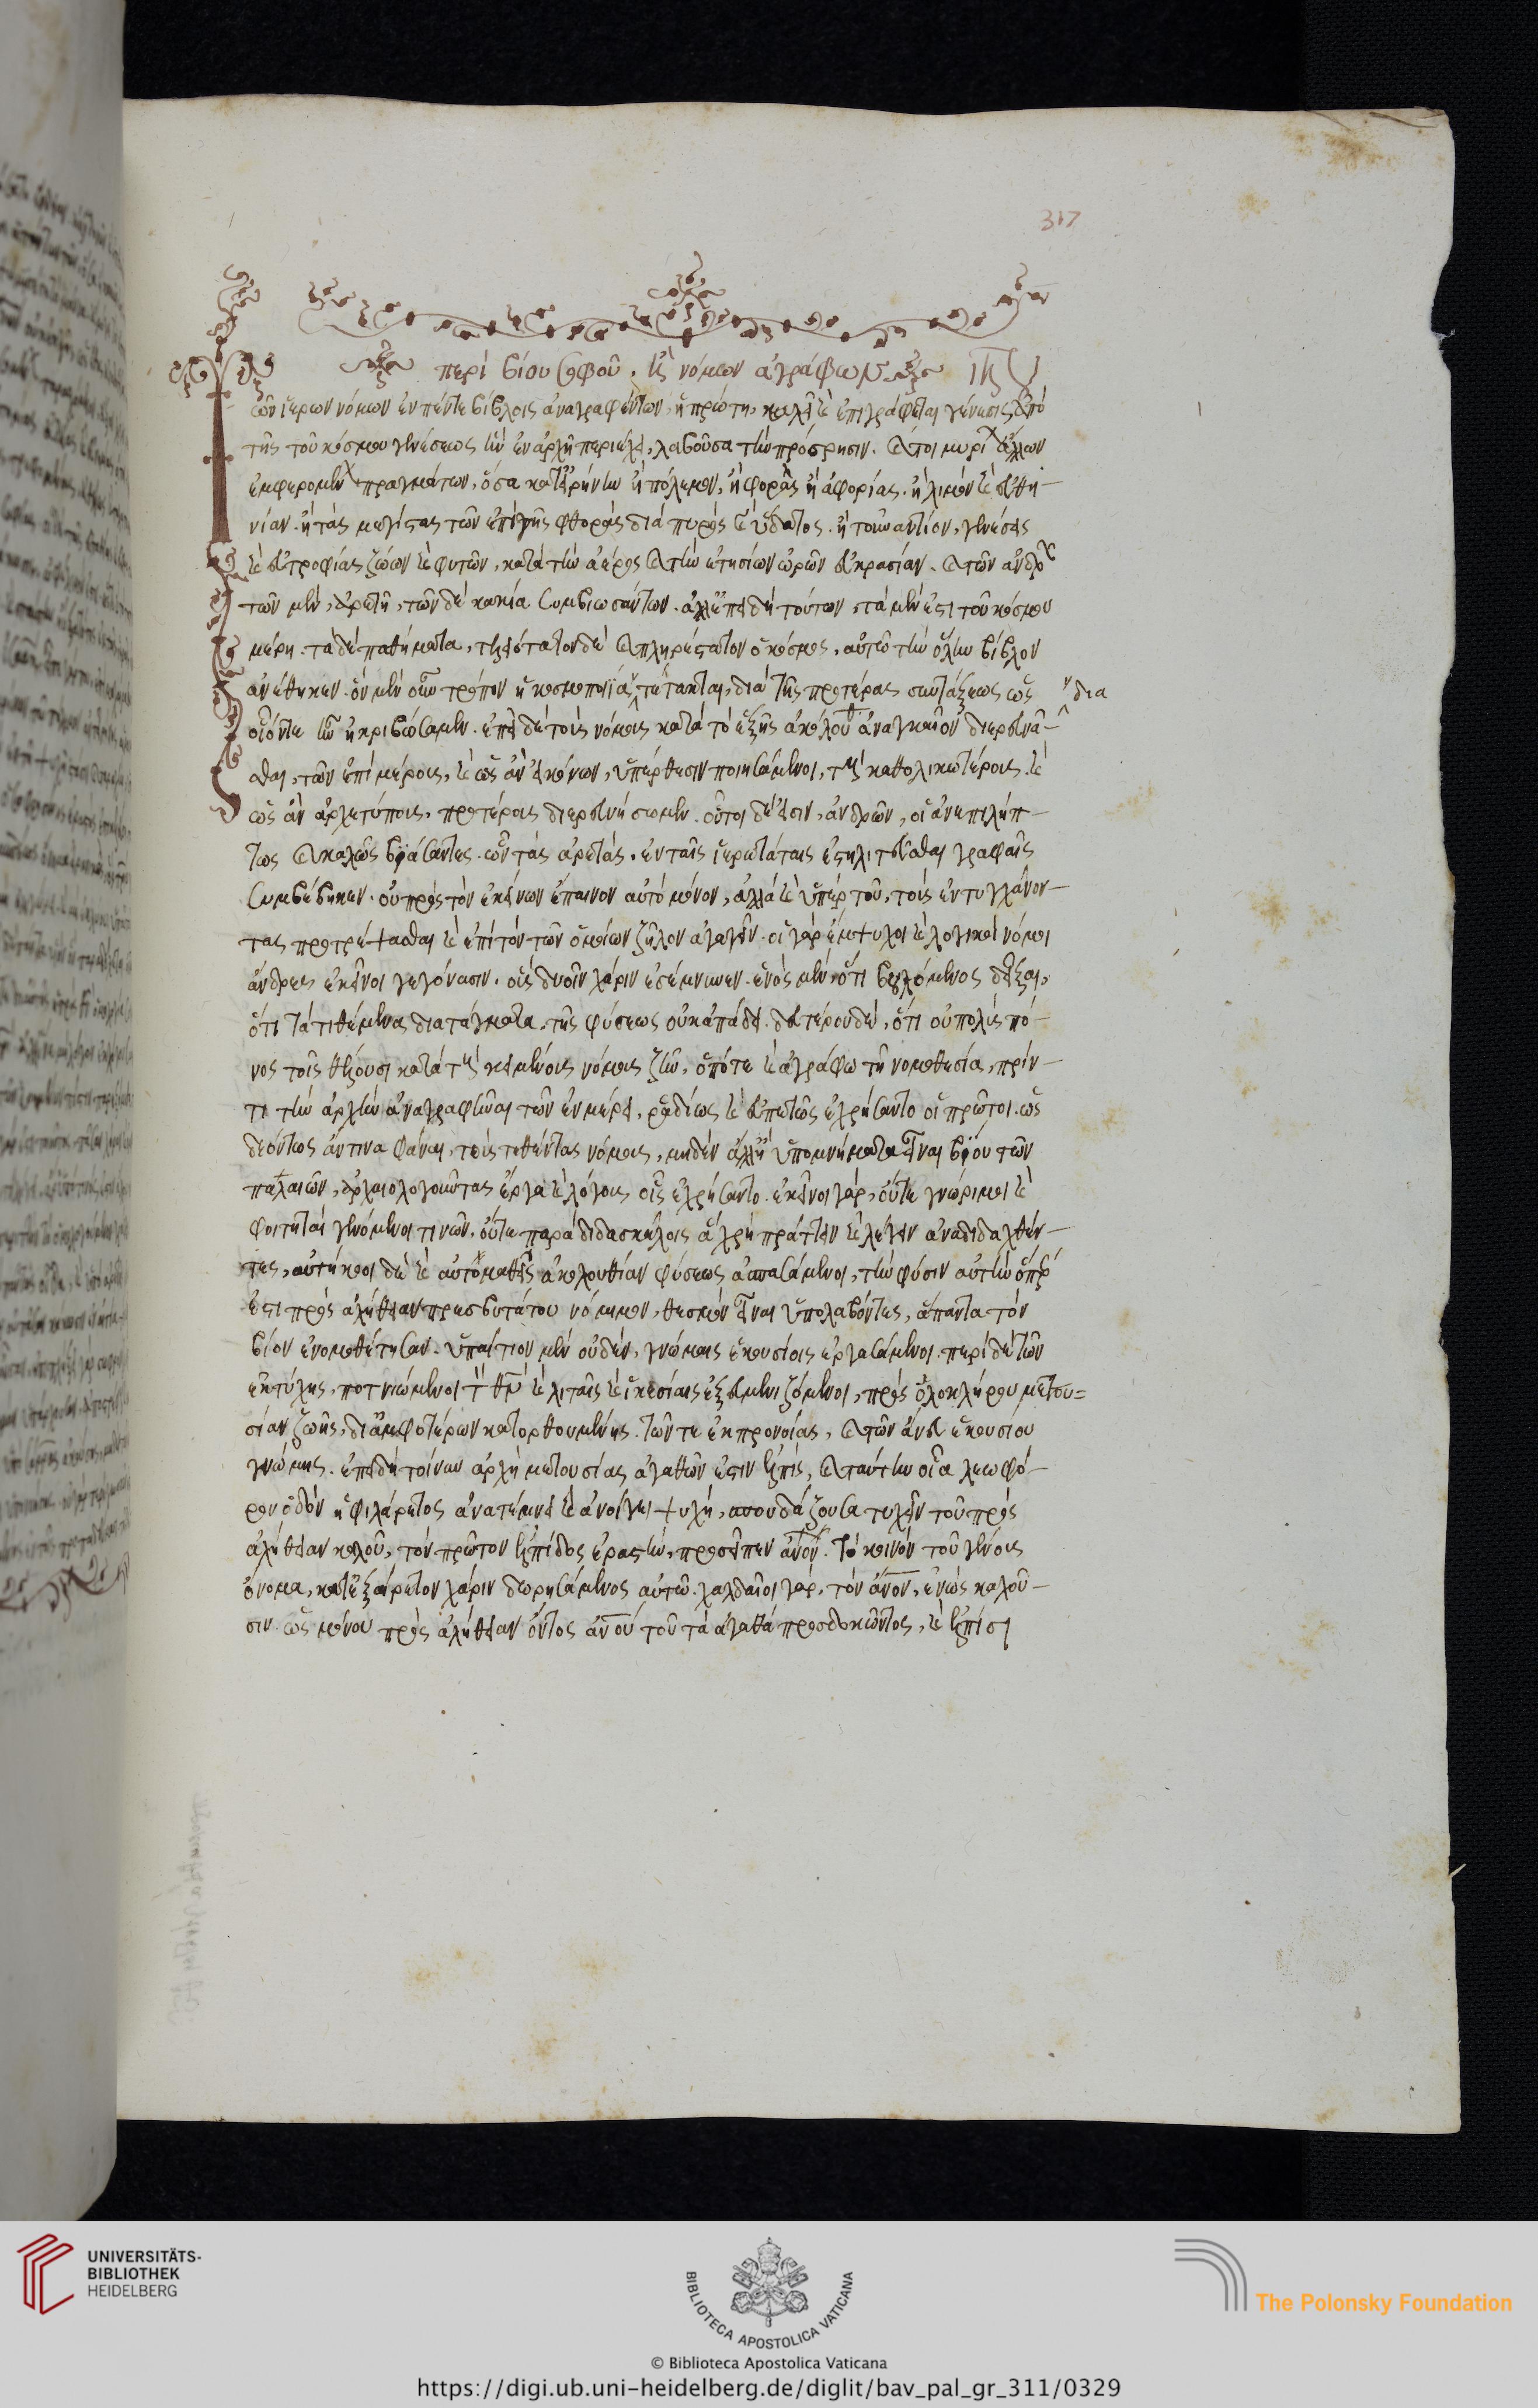 317
περὶ βίου σοφοῦ. καὶ νόμων ἀγράφων
Τῶν ἱερῶν νόμων ἐν πέντε βίβλοις ἀναγραφέντων, ἡ πρώτη, καλεῖται ἐπιγράφεται γένεσις ἀπὸ
τῆς τοῦ κόσμου γενέσεως ἣν ἐν ἀρχῇ περιέχει, λαβοῦσα τὴν πρόσρησιν. καίτοι μυρίων ἄλλων
ἐμφερομένων πραγμάτων, ὅσα κατ' εἰρήνην ἢ πόλεμον, ἢ φορὰς ἢ ἀφορίας. ἢ λιμὸν καὶ εὐθη-
νίαν. ἢ τὰς μεγίστας τῶν ἐπὶ γῆς φθορὰς διὰ πυρὸς καὶ ὕδατος. ἢ τοὐναντίον, γενέσεις
καὶ εὐτροφίας ζώων καὶ φυτῶν, κατὰ τὴν ἀέρος καὶ τὴν ἐτησίων ὡρῶν εὐκρασίαν. καὶ τῶν ἀνδρῶν
τῶν μὲν, ἀρετῇ, τῶν δὲ κακία συμβιωσάντων. ἀλλ' ἐπειδὴ τούτων, τὰ μὲν ἐστι τοῦ κόσμου
μέρη. τὰ δὲ παθήματα, τελειότατον δὲ καὶ πληρέστατον ὁ κόσμος, αὐτῷ τὴν ὅλην βίβλον
ἀνέθηκεν. ὃν μὲν οὖν τρόπον ἡ κοσμοποιΐα τέτακται, διὰ τῆς προτέρας συντάξεως ὡς
δια
οἷόντε ἦν ἠκριβώσαμεν. ἐπεὶ δὲ τοὺς νόμους κατὰ τὸ ἑξῆς ἀκόλουθον ἀναγκαῖον διερευνᾶ-
σθαι, τῶν ἐπὶ μέρους, καὶ ὡς ἂν εἰκόνων, ὑπέρθεσιν ποιησάμενοι, τοὺς καθολικωτέρους. καὶ
ὡς ἂν ἀρχετύπους, προτέρους διερευνήσωμεν. οὗτοι δέ εἰσιν, ἀνδρῶν, οἱ ἀνεπιλήπ-
τως καὶ καλῶς βιώσαντες. ὧν τὰς ἀρετὰς. ἐν ταῖς ἱερωτάταις ἐστηλιτεῦσθαι γραφαῖς
συμβέβηκεν. οὐ πρὸς τὸν ἐκείνων ἔπαινον αὐτὸ μόνον, ἀλλὰ καὶ ὑπὲρ τοῦ, τοὺς ἐντυγχάνον-
τας προτρέψασθαι καὶ ἐπὶ τὸν τῶν ὁμοίων ζῆλον ἀγαγεῖν. οἱ γὰρ ἔμψυχοι καὶ λογικοὶ νόμοι
ἄνδρες ἐκεῖνοι γεγόνασιν. οὓς δυοῖν χάριν ἐσέμνυνεν. ἑνὸς μὲν, ὅτι βουλόμενος δεῖξαι,
ὅτι τὰ τιθέμενα διατάγματα, τῆς φύσεως οὐκ ἀπάδει. δευτέρου δὲ, ὅτι οὐ πολὺς πό-
νος τοῖς θέλουσι κατὰ τοὺς κειμένους νόμους ζῆν, ὁπότε καὶ ἀγράφω τῇ νομοθεσία, πρίν-
τι τὴν ἀρχὴν ἀναγραφῆναι τῶν ἐν μέρει, ῥαδίως καὶ εὐπετῶς ἐχρήσαντο οἱ πρῶτοι. ὡς
δεόντως ἄν τινα φάναι, τοὺς τεθέντας νόμους, μηδὲν ἄλλ' ἢ ὑπομνήματα εἶναι βίου τῶν
παλαιῶν, ἀρχαιολογοῦντας ἔργα καὶ λόγους οἷς ἐχρήσαντο. ἐκεῖνοι γὰρ, οὔτε γνώριμοι καὶ
φοιτηταὶ γενόμενοι τινῶν, οὔτε παρὰ διδασκάλοις ἃ χρὴ πράττειν καὶ λέγειν ἀναδιδαχθέν-
τες, αὐτήκοοι δὲ καὶ αὐτομαθεῖς ἀκολουθίαν φύσεως ἀσπασάμενοι, τὴν φύσιν αὐτὴν ὅπερ
ἐστι πρὸς ἀλήθειαν πρεσβυτάτου νόμιμον, θεσμὸν εἶναι ὑπολαβόντες, ἅπαντα τὸν
βίον ἐνομοθέτησαν. ὑπαίτιον μὲν οὐδὲν, γνώμαις ἑκουσίοις ἐργασάμενοι. περὶ δὲ τῶν
ἐκ τύχης, ποτνιώμενοι τὸν θν καὶ λιταῖς καὶ ἱκεσίαις ἐξευμενιζόμενοι, πρὸς ὁλοκλήρου μετου=
σίαν ζωῆς, δι' ἀμφοτέρων κατορθουμένης. τῶν τε ἐκ προνοίας, καὶ τῶν ἄνευ ἑκουσίου
γνώμης. ἐπειδὴ τοίνυν ἀρχὴ μετουσίας ἀγαθῶν ἐστιν ἐλπὶς, καὶ ταύτην οἷα λεωφό-
ρον ὁδὸν ἡ φιλάρετος ἀνατέμνει καὶ ἀνοίγει ψυχὴ, σπουδάζουσα τυχεῖν τοῦ πρὸς
ἀλήθειαν καλοῦ, τὸν πρῶτον ἐλπίδος ἐραστὴν, προσεῖπεν ἄνον. τὸ κοινὸν τοῦ γένους
ὄνομα, κατ' ἐξαίρετον χάριν δωρησάμενος αὐτῷ. χαλδαῖοι γὰρ, τὸν ἄνον, ἐνὼς καλοῦ-
σιν. ὡς μόνου πρὸς ἀλήθειαν ὄντος ἀνου τοῦ τὰ ἀγαθὰ προσδοκῶντος, καὶ ἐλπίσι
UNIVERSITÄTS-
BIBLIOTHEK
HEIDELBERG
BIBLIOTECA APOSTOLICA VATICANA
The Polonsky Foundation
© Biblioteca Apostolica Vaticana
https://digi.ub.uni-heidelberg.de/diglit/bav_pal_gr_311/0329